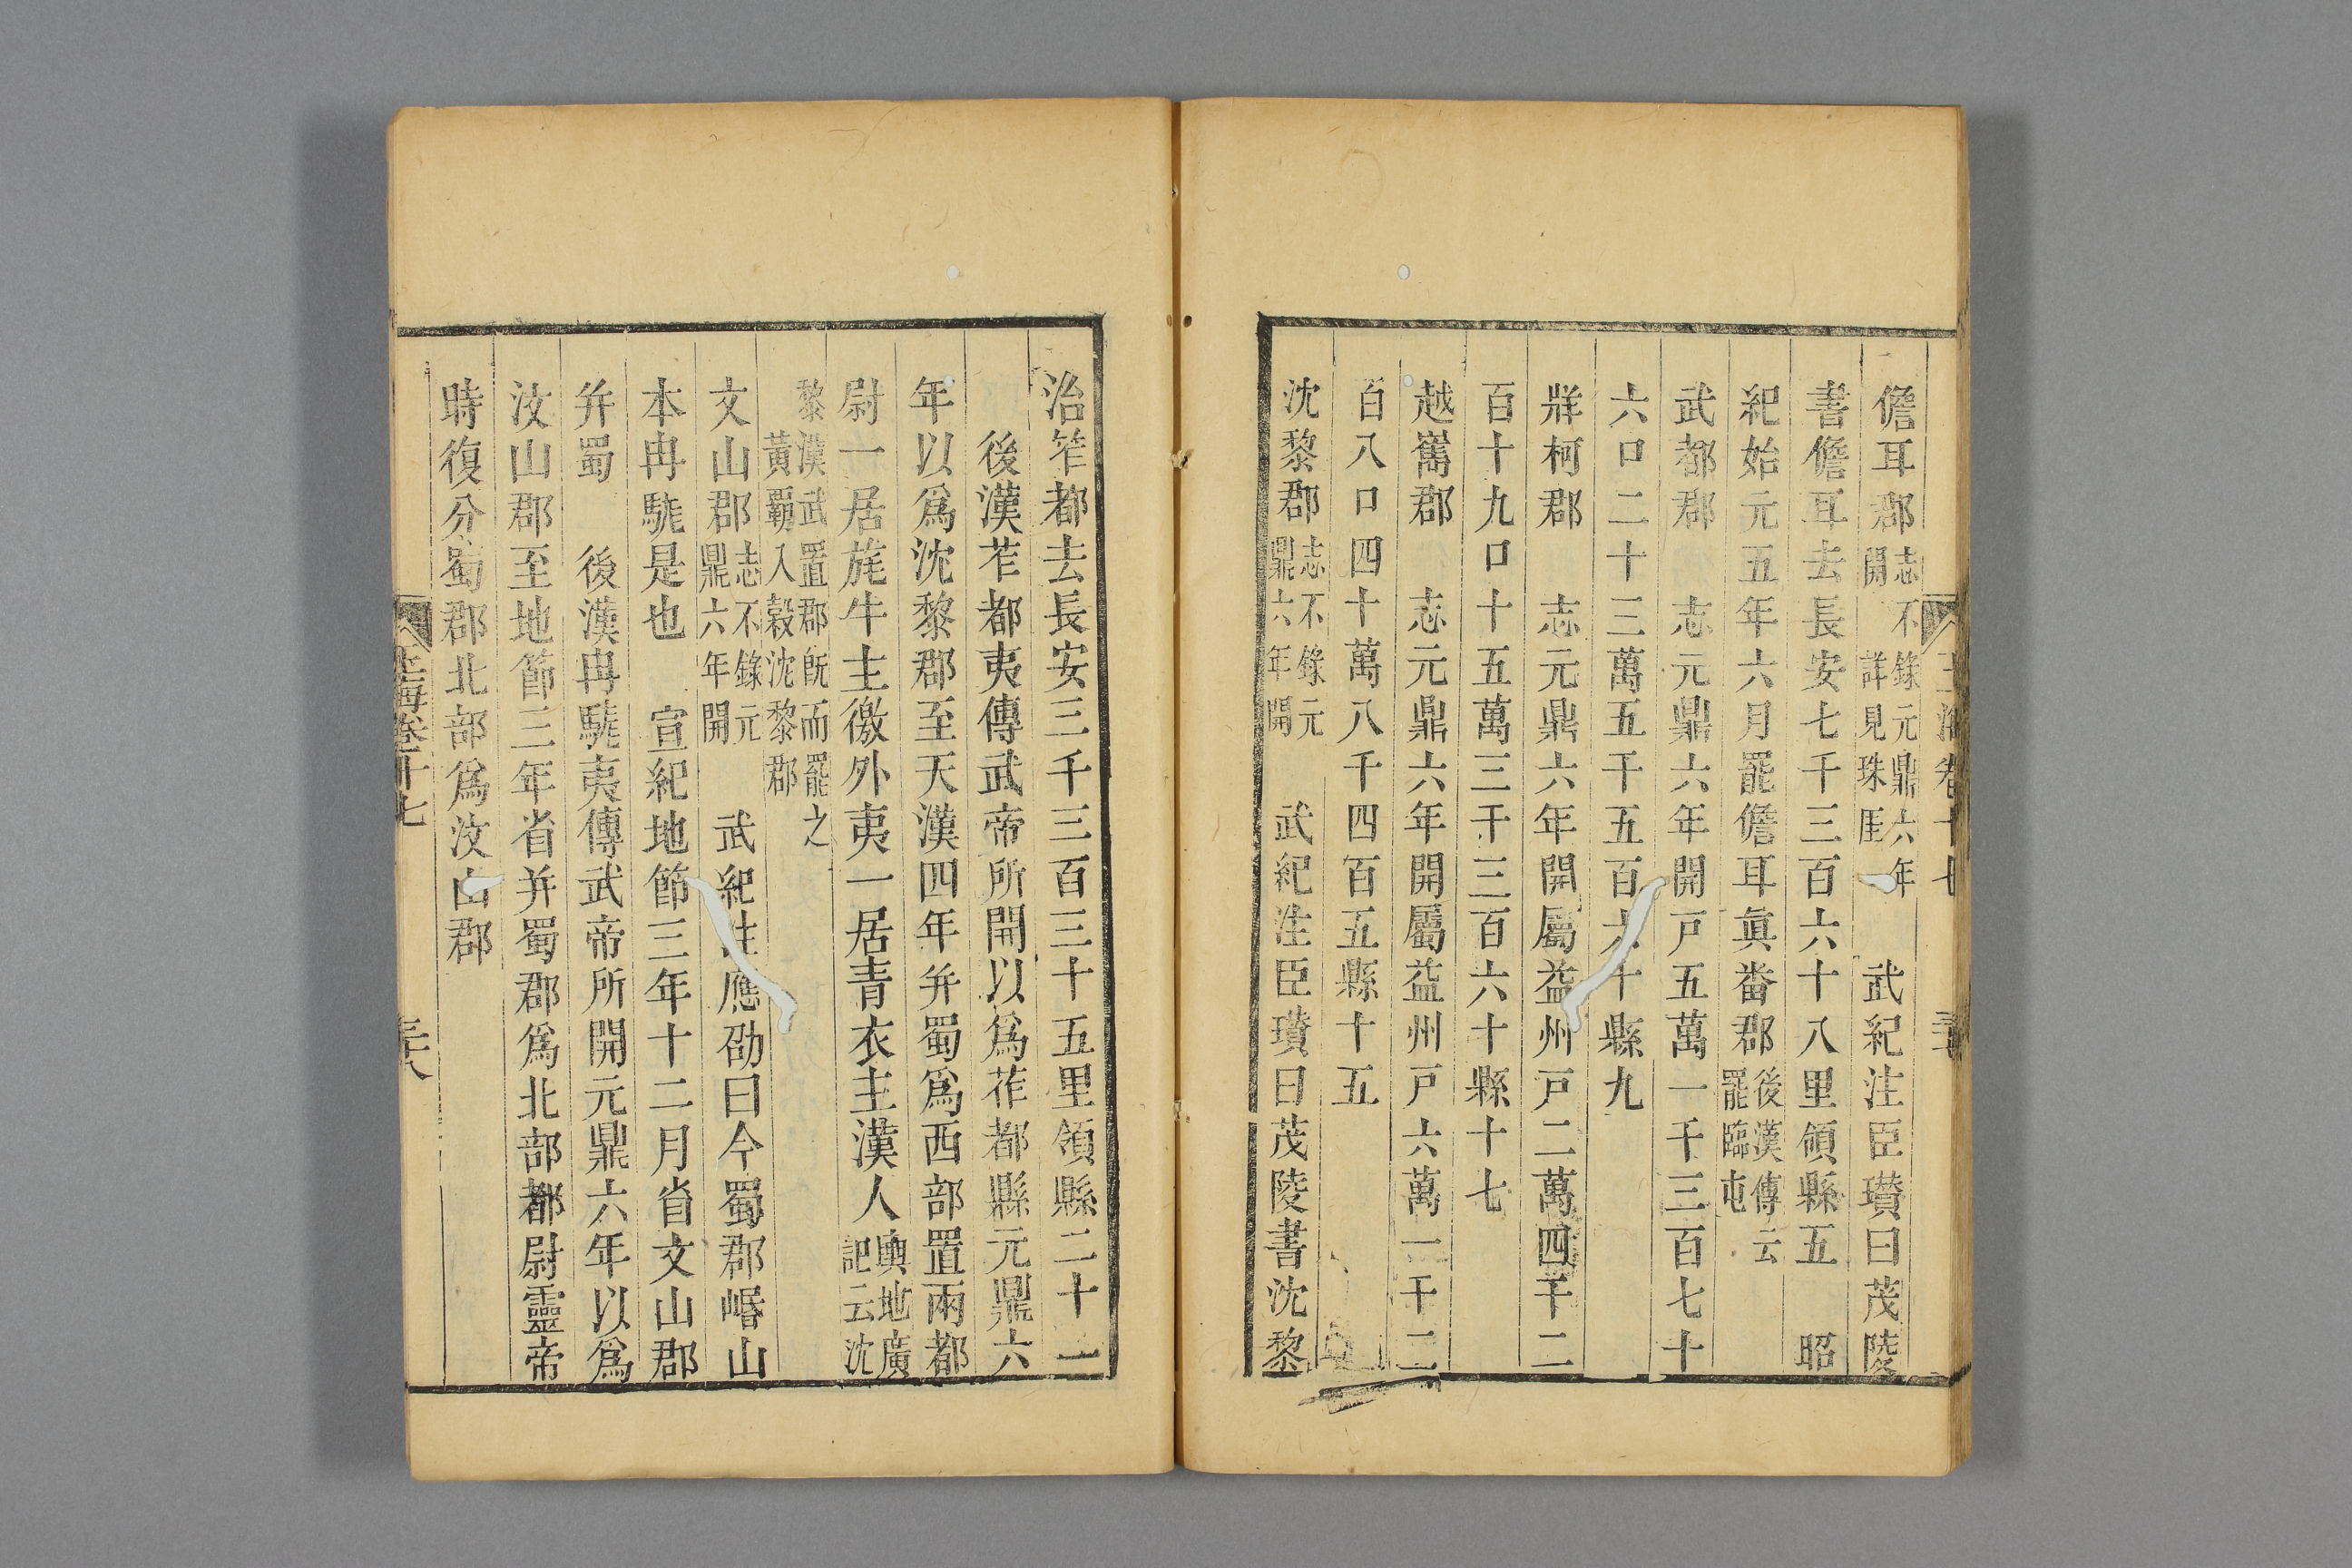 儋耳郡志不錄元鼎六年開詳見珠厓　武紀注臣瓚曰茂陵
書儋耳去長安七千三百六十八里領縣五　昭
紀始元五年六月罷儋耳眞畨郡後漢傳云罷臨屯
武都郡　志元鼎六年開戸五萬一千三百七十
六口二十三萬五千五百六十縣九
牂柯郡　志元鼎六年開屬益州戸二萬四千二
百十九口十五萬三千三百六十縣十七
越嶲郡　志元鼎六年開屬益州戸六萬一千二
百八口四十萬八千四百五縣十五
沈黎郡志不錄元鼎六年開　武紀注臣瓚曰茂陵書沈黎
治笮都去長安三千三百三十五里領縣二十一
後漢莋都夷傳武帝所開以爲莋都縣元鼎六
年以爲沈黎郡至天漢四年并蜀爲西部置兩都
尉一居旄牛主徼外夷一居青衣主漢人輿地廣記云沈
黎漢武置郡旣而罷之黃覇入穀沈黎郡
文山郡志不錄元鼎六年開　武紀注應劭曰今蜀郡㟭山
本冉駹是也　宣紀地節三年十二月省文山郡
并蜀　後漢冉駹夷傳武帝所開元鼎六年以爲
汶山郡至地節三年省并蜀郡爲北部都尉靈帝
時復分蜀郡北部爲汶山郡
玉海卷十七
三六